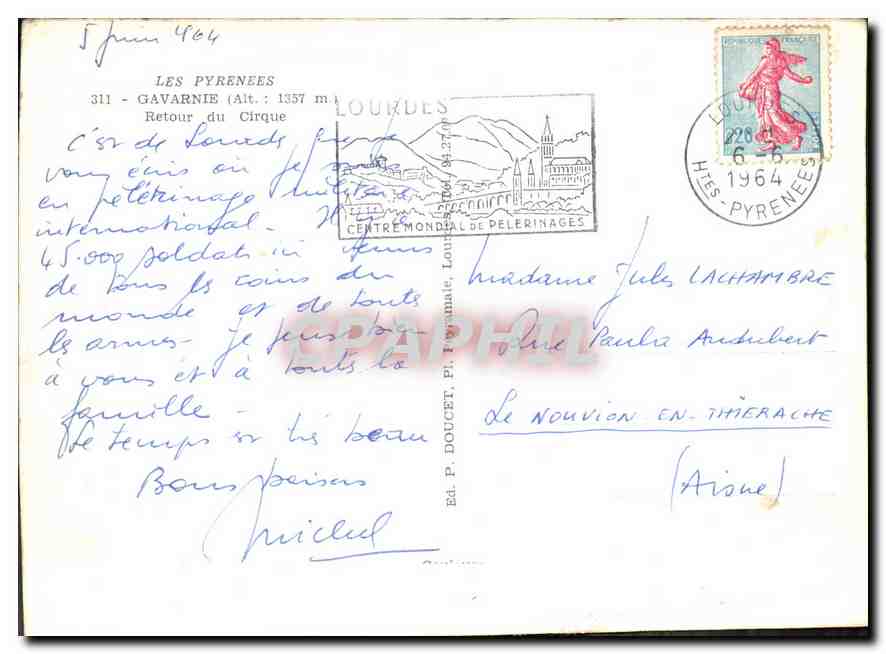 5 Juin 464
LES PYRENEES
311 - GAVARNIE (Alt. : 1357 m.)
Retour du Cirque
C'est de Lourds que je
vous écris où je suis
en pélérinage militaire
international. Il y a
45.000 soldats ici venus
de tous les coins du
monde et de toutes
les armes. Je pense bien
à vous et à toute la
famille -
Le temps est très beau
Bons baisers
Michel
LOURDES
CENTRE MONDIAL DE PELERINAGES
REPUBLIQUE FRANÇAISE
0,20
LOURDES
6-6
1964
HTES-PYRENEES
Ed. P. DOUCET, Pl. Peyramale, Lourdes, Tél. 94.27.00
CPAPHIL
Madame Jules LACHAMBRE
Rue Paula Audubert
Le NOUVION-EN-THIERACHE
(Aisne)